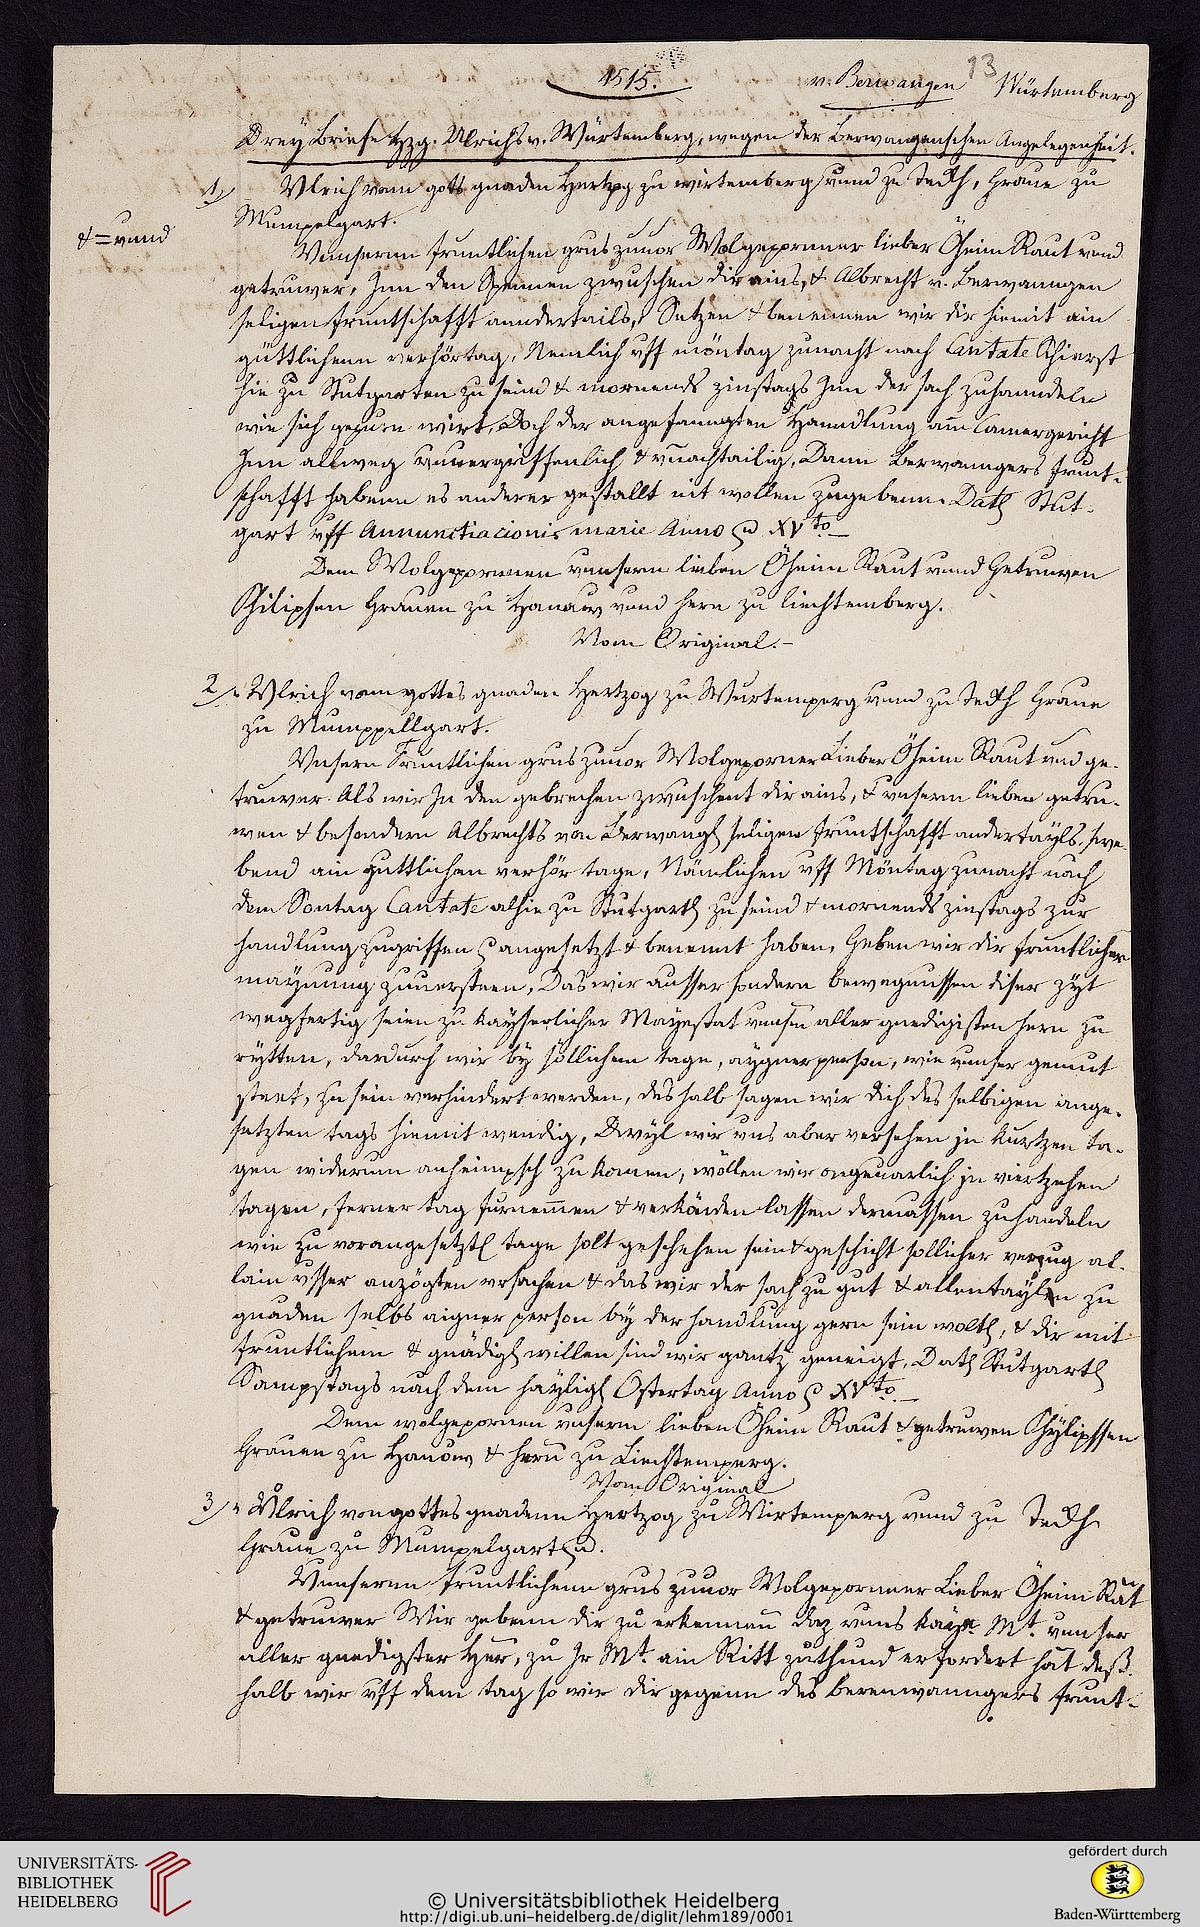 13
1515.
v. Berwangen Würtemberg
Drey Briefe Hzg. Ulrichs v. Würtemberg, wegen der Berwangenschen Angelegenheit.
1) Vlrich vonn gots gnaden Hertzog zu wirtemberg vnnd zu Teckh, Graue zu
Mumpelgart.
&=vnnd
Vnnsernn fruntlichen grus zuuor Wolgepornner lieber Öheim Raut vnnd
getruwer, Jnn den Spennen zwuschen dir ains, & Albrecht v. Berwanngen
seligen fruntschafft anndertails, Setzen & benennen wir dir hiemit ain
güttlichenn verhörtag, Nemlich vff möntag zunacht nach Cantate schierst
hie zu Stutgarten zu seind & mornends zinstags Jnn der sach zuhanndeln
wie sich gepurn wirt, Doch der angefanngten Hanndlung am Camergericht
Jnn allweg vnuergriffenlich & vnachtailig, Dann Berwanngers frunt-
schafft habenn es anderer gestallt nit wollen zugebenn. Dat Stut-
gart vff Annunctiacionis marie Anno XVto
Dem Wolgepornnen vnnserm lieben Öheim Raut vnnd Getruwen
Philipsen Grauen zu Hanaw vnnd hern zu liechtemberg.
Vom Original.-
2) Vlrich vonn gottes gnaden Hertzog zu Wurtemperg vnnd zu Teckh Graue
zu Mumppellgart.
Vnsern Fruntlichen grus zuuor Wolgeporner Lieber Öheim Raut vnd ge-
truwer. Als wir Jn den gebrechen zwuschent dir ains, & vnserm lieben getru-
wen & besondern Albrechts von Berwang seligen fruntschafft andertayls, swe-
bend ain guttlichen verhör tage, Nämlichen vff Möntag zunacht nach
dem Sontag Cantate alhie zu Stutgart zu seind & mornends zinstags zur
handlung zugriffen angesetzt & benennt haben, Geben wir dir fruntlicher
maynung zuuersteen, Das wir ausser sondern bewegnussen diser zyt
wegfertig seien zu kayserlicher Mayestat vnserm aller gnedigisten hern zu
rytten, dardurch wir by sollichem tage, aygner person, wie vnnser gemut
steet, zu sein verhindert werden, deshalb sagen wir dich des selbigen ange-
setzten tags hiemit wendig, Dwyl wir vns aber versehen jn kurtzen ta-
gen widerum anheimpsch zu komen, wöllen wir ongeuarlich jn viertzehen
tagen, ferner tag furnemen & verkönden lassen dermassen zuhandeln
wie zu vorangesetzt tage solt geschehen sein & geschicht sollicher verzug al-
lain vsser anzögten vrsachen & das wir der sach zu gut & allentaylen zu
gnaden selbs aigner person by der handlung gern sein wolt, & dir mit
fruntlichem & gnädig willen sind wir gantz geneigt, Dat Stutgart
Sampstags nach dem hayligen Ostertag Anno XVto
Dem wolgepornen vnserm lieben Öheim Raut & getruwen Phylipssen
Grauen zu Hanow & hern zu Liechtemperg.
Vom Original
3) Vlrich von gottes gnadenn Hertzog zu Wirtemperg vnnd zu Teckh
Graue zu Mumpelgart
Vnnsernn fruntlichenn grus zuuor Wolgepornner Lieber Öheim Rat
& getruwer Wir gebenn dir zu erkennen daz vnns Kay. Mt. vnnser
aller gnedigster Her, zu Jr Mt. ain Ritt zuthund erfordert hat deß-
halb wir vff dem tag so wir dir gegenn des berenwanngers frunt-
UNIVERSITÄTS-
BIBLIOTHEK
HEIDELBERG
© Universitätsbibliothek Heidelberg
http://digi.ub.uni-heidelberg.de/diglit/lehm189/0001
gefördert durch
Baden-Württemberg